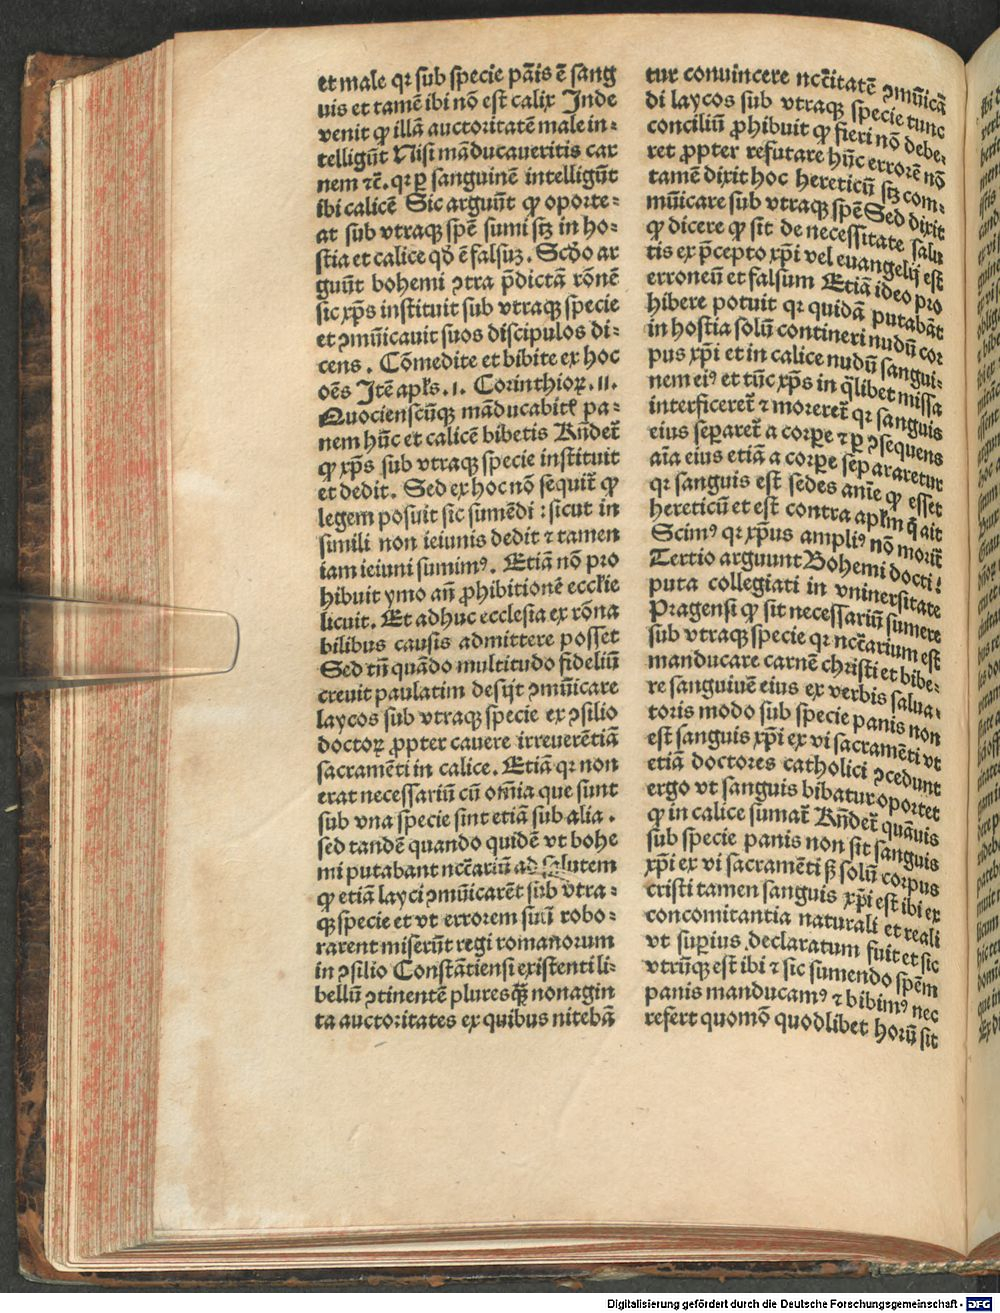 et male qꝛ sub specie pāis ē sang
uis et tamē ibi nō est calix Inde
venit ꝙ illā auctoritatē male in-
telligūt Nisi māducaueritis car
nem ꝛc̄. qꝛ ꝑ sanguinē intelligūt
ibi calicē Sic arguūt ꝙ oporte-
at sub vtraqꝫ spē sumi sꝫ in ho-
stia et calice qđ ē falsuꝫ. Scďo ar
guūt bohemi ꝯtra p̄dictā rōnē
sic xp̄s instituit sub vtraqꝫ specie
et ꝯmūicauit suos discipulos di-
cens. Cōmedite et bibite ex hoc
oēs Itē apl̄s .i. Corinthioꝝ .ii.
Quocienscūqꝫ māducabit̄ pa-
nem hūc et calicē bibetis Rn̄det̄
ꝙ xp̄s sub vtraqꝫ specie instituit
et dedit. Sed ex hoc nō sequit̄ ꝙ
legem posuit sic sumēdi : sicut in
simili non ieiunis dedit ⁊ tamen
iam ieiuni sumimꝰ. Etiā nō pro
hibuit ymo an̄ ꝓhibitionē eccl̄ie
licuit. Et adhuc ecclesia ex rōna
bilibus causis admittere posset
Sed tn̄ quādo multitudo fideliū
creuit paulatim desijt ꝯmūicare
laycos sub vtraqꝫ specie ex ꝯsilio
doctoꝝ ꝓpter cauere irreuerētiā
sacramēti in calice. Etiā qꝛ non
erat necessariū cū om̄ia que sunt
sub vna specie sint etiā sub alia .
sed tandē quando quidē vt bohe
mi putabant ncc̄ariū ad salutem
ꝙ etiā layci ꝯmūicarēt sub vtra-
qꝫ specie et vt errorem suū robo-
rarent miserūt regi romanorum
in ꝯsilio Constātiensi existenti li-
bellū ꝯtinentē plures qꝫ̄ nonagin
ta auctoritates ex quibus nitebā
tur conuincere ncc̄itatē ꝯmūicā
di laycos sub vtraqꝫ specie tunc
conciliū ꝓhibuit ꝙ fieri nō debe-
ret ꝓpter refutare hūc errorē nō
tamē dixit hoc hereticū sꝫ com-
mūicare sub vtraqꝫ spē Sed dixit
ꝙ dicere ꝙ sit de necessitate salu
tis ex p̄cepto xp̄i vel euangelij est
erroneū et falsum Etiā ideo pro
hibere potuit qꝛ quidā putabāt
in hostia solū contineri nudū cor
pus xp̄i et in calice nudū sangui-
nem eiꝰ et tūc xp̄s in q̄libet missa
interficeret̄ ⁊ moreret̄ qꝛ sanguis
eius separet̄ a corꝑe ⁊ ꝑ ꝯsequens
aīa eius etiā a corꝑe separaretur
qꝛ sanguis est sedes anīe ꝙ esset
hereticū et est contra apl̄m q̄ ait
Scimꝰ qꝛ xp̄us ampliꝰ nō morit̄
Tertio arguunt Bohemi docti :
puta collegiati in vniuersitate
Pragensi ꝙ sit necessariū sumere
sub vtraqꝫ specie qꝛ ncc̄arium est
manducare carnē christi et bibe-
re sanguiuē eius ex verbis salua-
toris modo sub specie panis non
est sanguis xp̄i ex vi sacramēti vt
etiā doctores catholici ꝯcedunt
ergo vt sanguis bibatur oportet
ꝙ in calice sumat̄ Rn̄det̄ quāuis
sub specie panis non sit sanguis
xp̄i ex vi sacramēti sꝫ solū corpus
cristi tamen sanguis xp̄i est ibi ex
concomitantia naturali et reali
vt suꝑius declaratum fuit et sic
vtrūqꝫ est ibi ⁊ sic sumendo spēm
panis manducamꝰ ⁊ bibimꝰ nec
refert quomō quodlibet horū sit
Digitalisierung gefördert durch die Deutsche Forschungsgemeinschaft - DFG